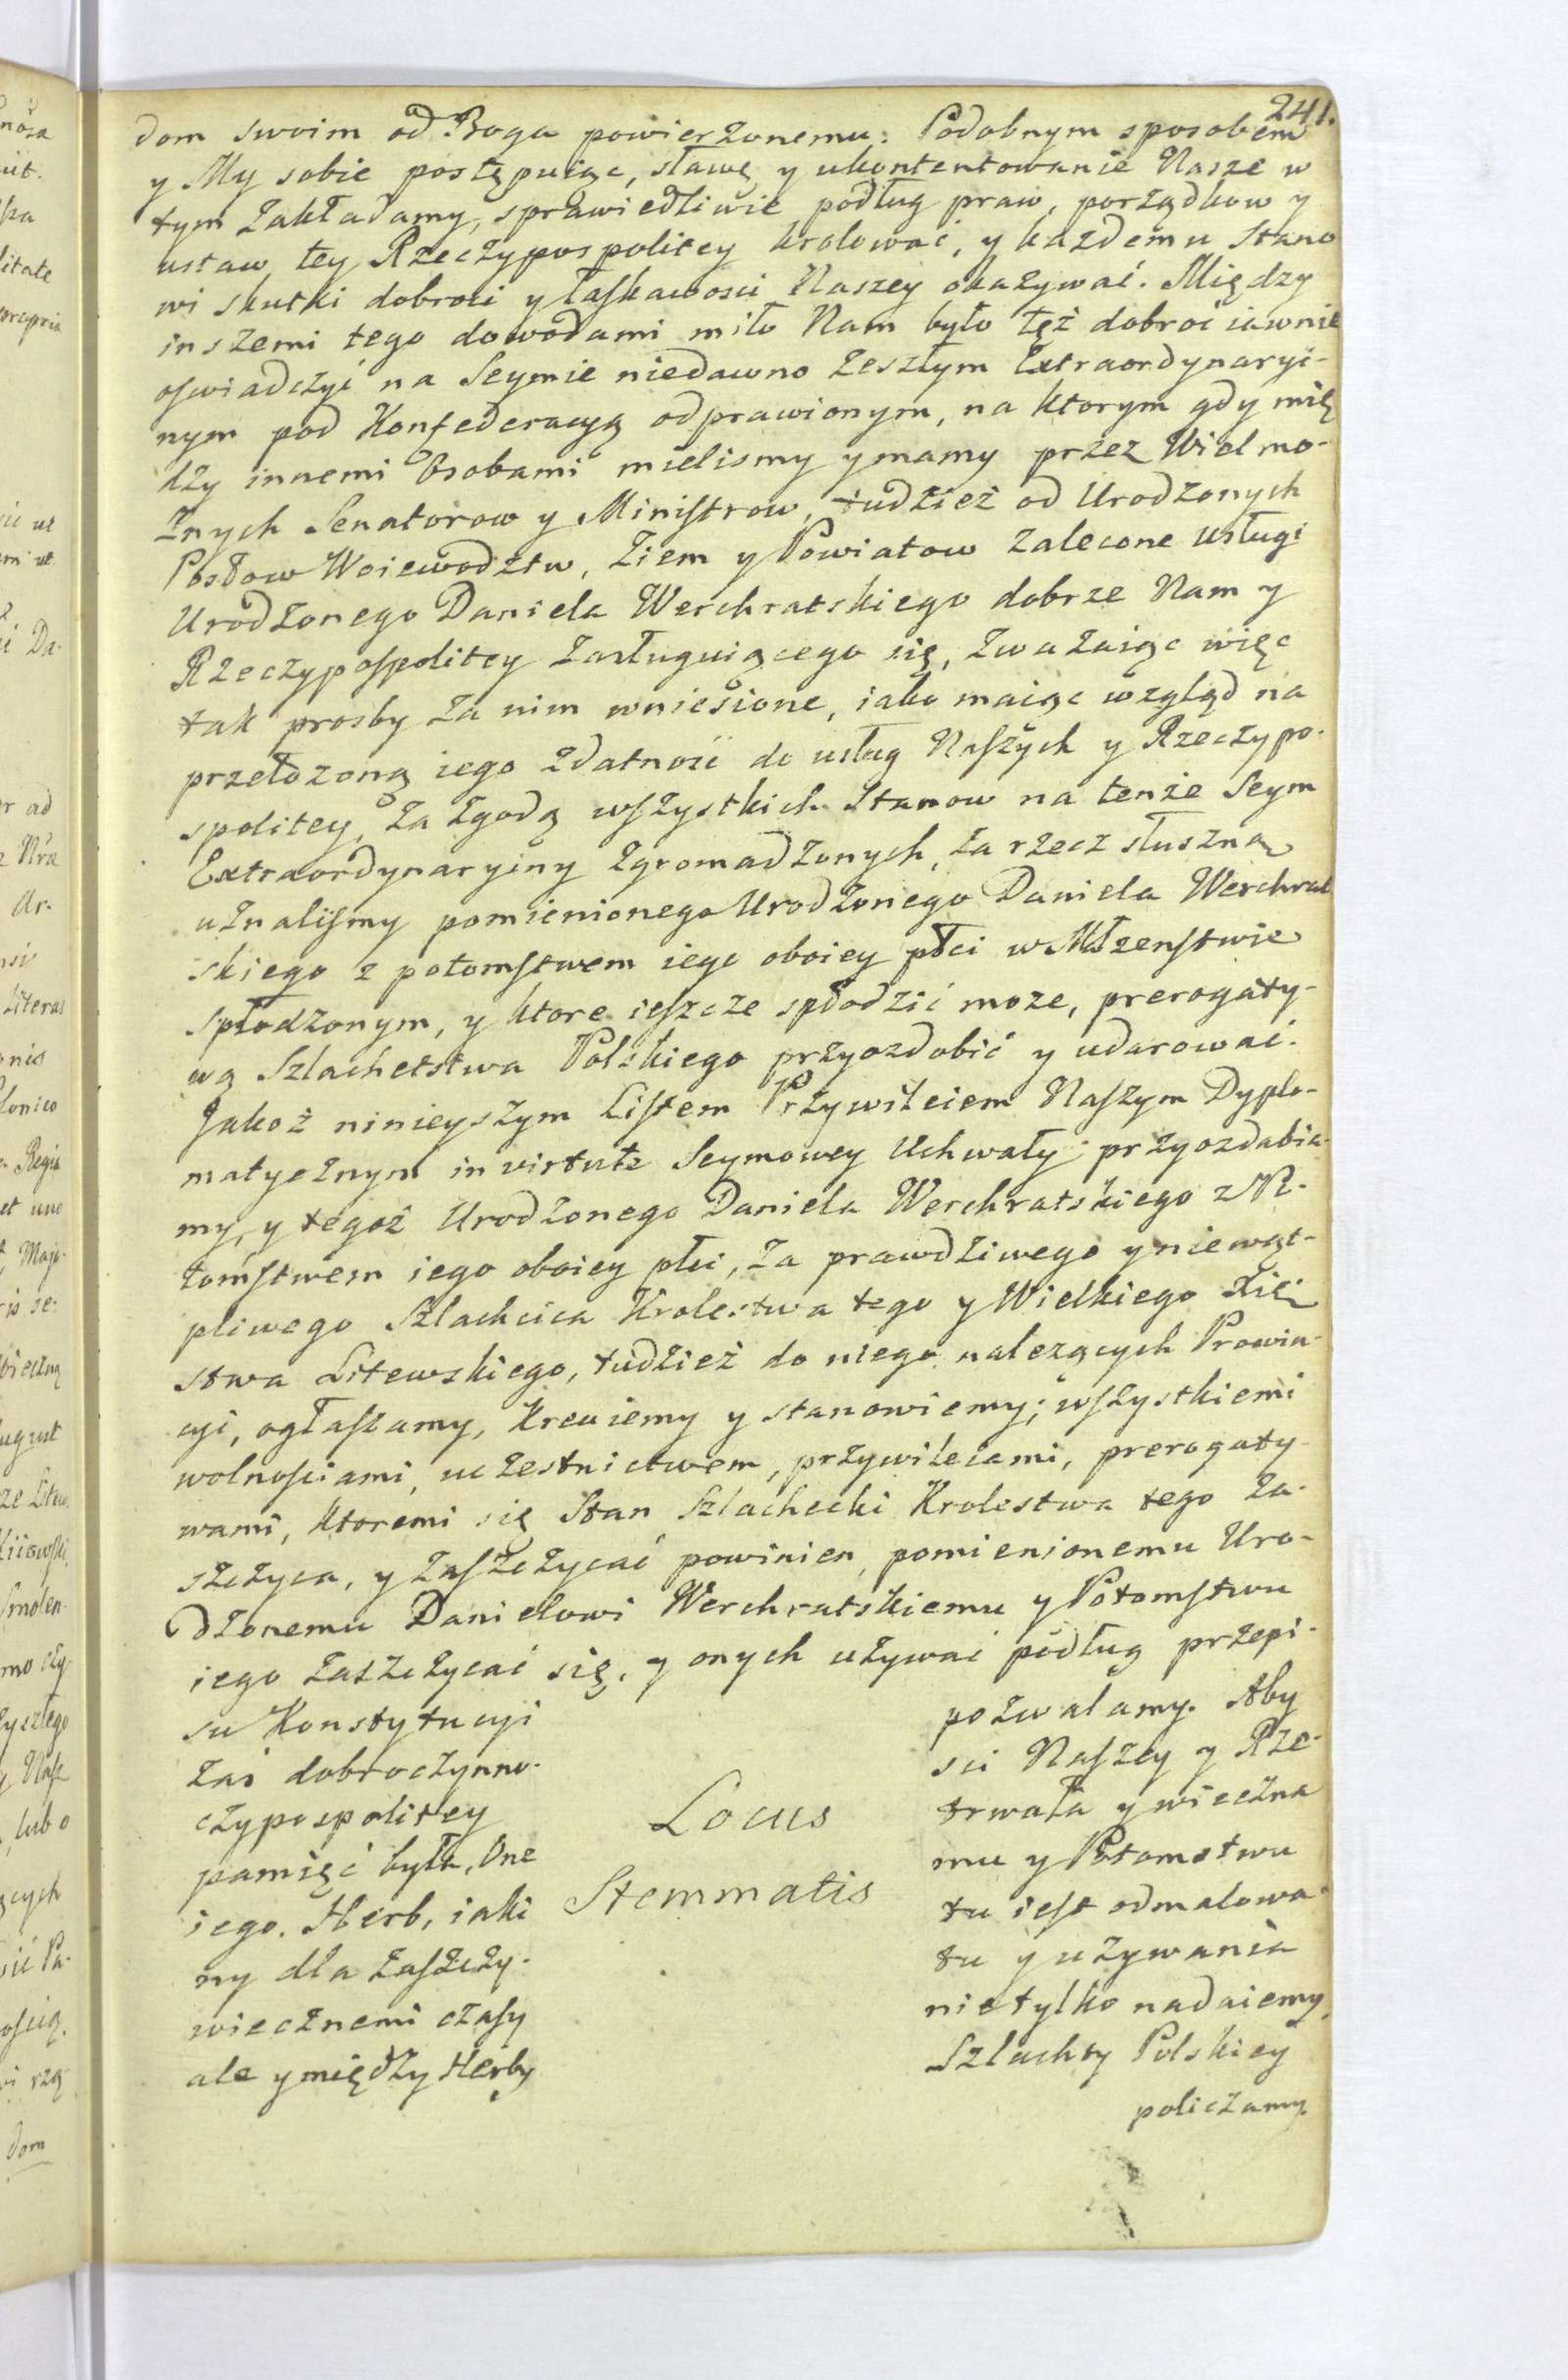 241.
dom swoim od Boga powierzonemu. Podobnym sposobem
y My sobie postępuiąc, sławę y ukontentowanie Nasze w
tym zakładamy, sprawiedliwie podług praw, porządkow y
ustaw tey Rzeczypospolitey krolować, y każdemu Stano
wi skutki dobroci y łaskawości Naszey okazywać. Między
inszemi tego dowodami miło Nam było tęż dobroć iawnie
oswiadczyć na Seymie niedawno zeszłym Extraordynaryi-
nym pod Konfederacyą odprawionym, na ktorym gdy mię
dzy innemi Osobami mielismy y mamy przez Wielmo-
znych Senatorow y Ministrow, tudzież od Urodzonych
Posłow Woiewodztw, Ziem y Powiatow zalecone usługi
Urodzonego Daniela Werchratskiego dobrze Nam y
Rzeczypospolitey zasługuiącego się, zważaiąc więc
tak prosby za nim wniesione, iako maiąc wzgląd na
przełozoną iego zdatność do usług Naszych y Rzeczypo-
spolitey, za zgodą wszystkich Stanow na tenże Seym
Extraordynaryiny zgromadzonych, za rzecz słuszną
uznalismy pomienionego Urodzonego Daniela Werchrat
skiego z potomstwem iego oboiey płci w Młzenstwie
spłodzonym, y ktore ieszcze spłodzić może, prerogaty-
wą Szlachetstwa Polskiego przyozdobić y udarować.
Jakoż ninieyszym Listem Przywileiem Naszym Dyplo-
matycznym in virtute Seymowey Uchwały przyozdabia-
my, y tegoż Urodzonego Daniela Werchratskiego z Po-
tomstwem iego oboiey płci, za prawdziwego y niewąt-
pliwego Szlachcica Krolestwa tego y Wielkiego Xię
stwa Litewskiego, tudzież do niego nalezących Prowin-
cyi, ogłaszamy, kreuiemy y stanowiemy; wszystkiemi
wolnościami, uczestnictwem, przywileiami, prerogaty-
wami, ktoremi się Stan Szlachecki Krolestwa tego za-
szczyca, y zaszczycać powinien, pomienionemu Uro-
dzonemu Danielowi Werchratskiemu y Potomstwu
iego zaszczycać się, y onych używać podług przepi-
su Konstytucyi pozwalamy. Aby
zaś dobroczynno- sci Naszey y Rze-
czypospolitey trwała y wieczna
pamięć była, One mu y Potomstwu
iego. Herb, iaki tu iest odmalowa-
ny dla zaszczy- tu y używania
wiecznemi czasy nietylko nadaiemy,
ale y między Herby Szlachty Polskiey
policzamy.
Locus
Stemmatis